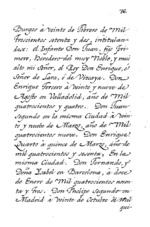 76.
Burgos à veinte de Febrero de mil
trecientos setenta y dos, intitulan-
dose el Infante Don Juan, fijo pri-
mero, Heredero del muy Noble, y muy
alto mi Señor, el Rey Don Enrique, y
Señor de Lara, i de Vizcaya. Don
Enrique Tercero à veinte y nueve de
Agosto en Valladolid, año de Mil
quatrocientos y quatro. Don Juan
Segundo en la misma Ciudad à vein-
te y nueve de Marzo, año de Mil
quatrocientos nueve. Don Enrique
Quarto à quince de Marzo, año
de mil quatrocientos y sesenta, En la
misma Ciudad. Don Fernando, y
Doña Isabel en Barcelona, à doce
de Enero de Mil quatrocientos noven-
ta y tres. Don Phelipe Segundo en
Madrid à veinte de Octubre de Mil
qui-